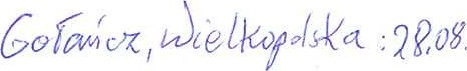 Gołańcz, Wielkopolska : 28.08.